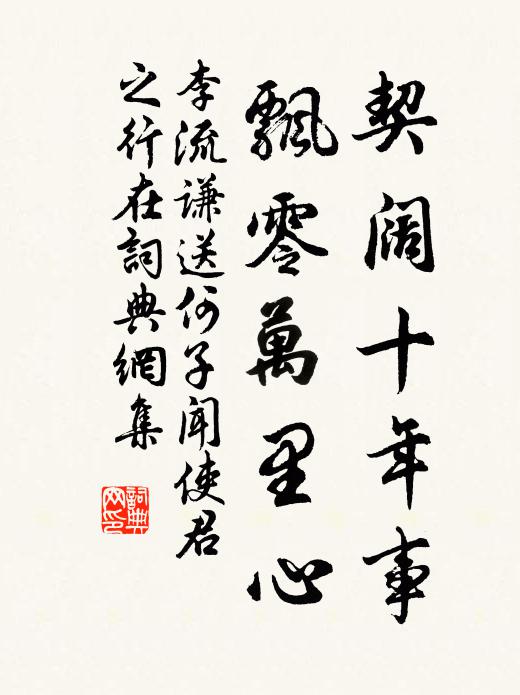 契阔十年事
飄零萬里心
李流謙送何子聞使君
之行在詞典網集
詞典
网印